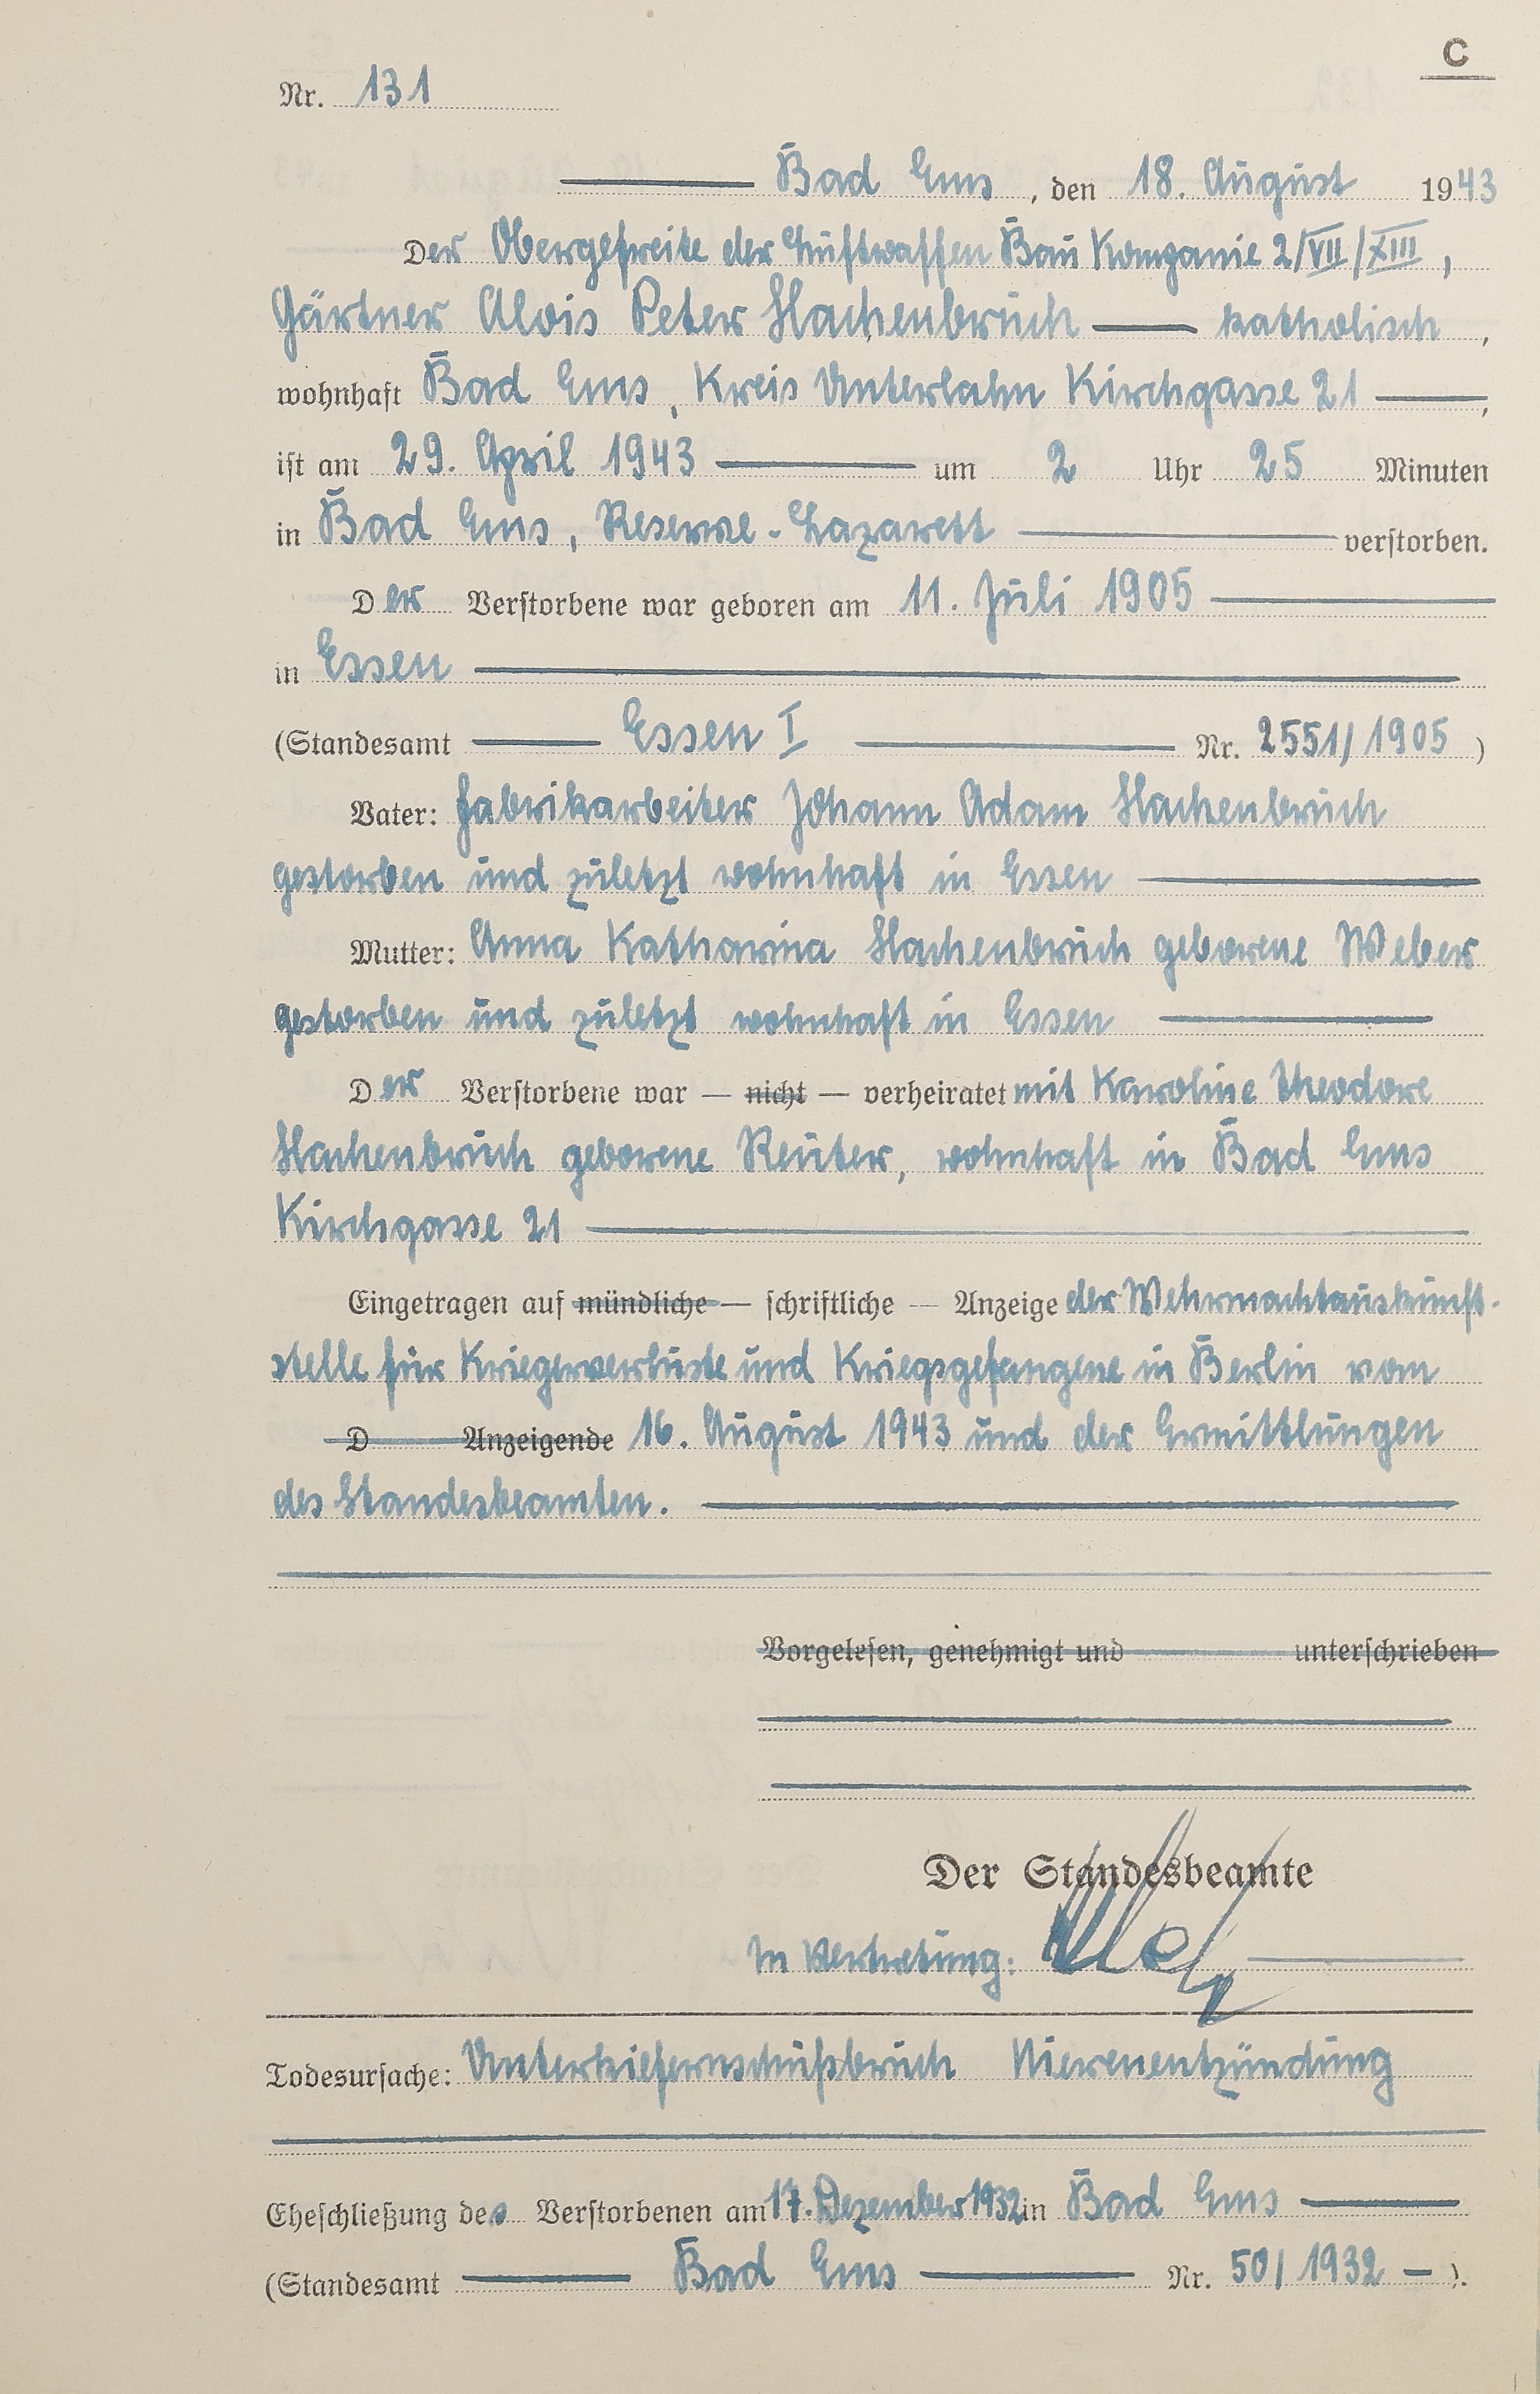 C
Nr. 131
Bad Ems, den 18. August 1943
Der Obergefreite der Luftwaffen Bau Kompanie 2/VII/XIII,
Gärtner Alois Peter Hachenbruch — katholisch,
wohnhaft Bad Ems, Kreis Unterlahn Kirchgasse 21 —,
ist am 29. April 1943 — um 2 Uhr 25 Minuten
in Bad Ems, Reserve-Lazarett — verstorben.
Der Verstorbene war geboren am 11. Juli 1905 —
in Essen —
(Standesamt — Essen I — Nr. 2551/1905)
Vater: Fabrikarbeiter Johann Adam Hachenbruch
gestorben und zuletzt wohnhaft in Essen —
Mutter: Anna Katharina Hachenbruch geborene Weber
gestorben und zuletzt wohnhaft in Essen —
Der Verstorbene war — nicht — verheiratet mit Karoline Theodore
Hachenbruch geborene Reuter, wohnhaft in Bad Ems
Kirchgasse 21 —
Eingetragen auf mündliche — schriftliche — Anzeige der Wehrmachtauskunft-
stelle für Kriegerverluste und Kriegsgefangene in Berlin vom
D Anzeigende 16. August 1943 und der Ermittlungen
des Standesbeamten. —
Vorgelesen, genehmigt und unterschrieben
Der Standesbeamte
In Vertretung:
Todesursache: Unterkiefernschußbruch Nierenentzündung
Eheschließung des Verstorbenen am 17. Dezember 1932 in Bad Ems —
(Standesamt — Bad Ems — Nr. 50/1932 — ).